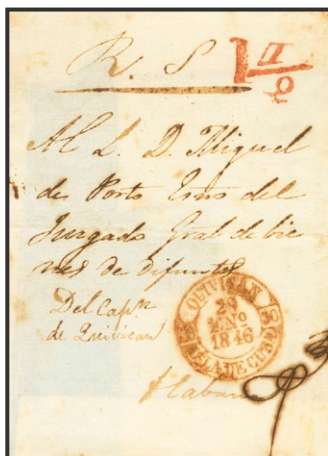 R. S
Al L. D. Miguel
de Porto Esno del
Juzgado Gral de bie
nes de difuntos
Del Capn
de Quivican
QUIVICAN
29
ENO
1846
ISLA DE CUBA
Habana